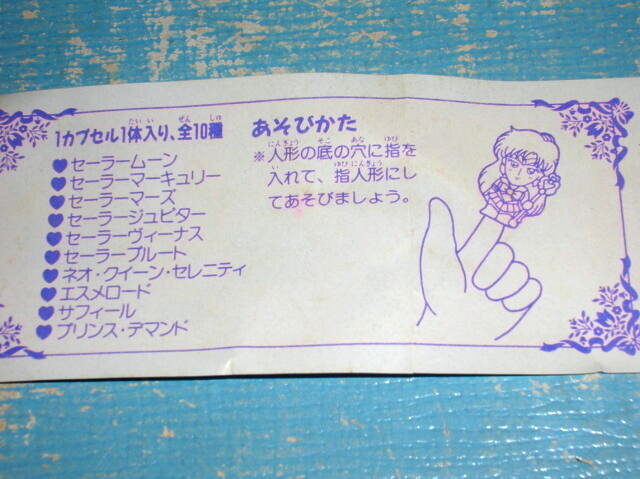 1カプセル1体入り、全10種
セーラームーン
セーラーマーキュリー
セーラーマーズ
セーラージュピター
セーラーヴィーナス
セーラープルート
ネオ・クイーン・セレニティ
エスメロード
サフィール
プリンス・デマンド
あそびかた
※人形の底の穴に指を
入れて、指人形にし
てあそびましょう。